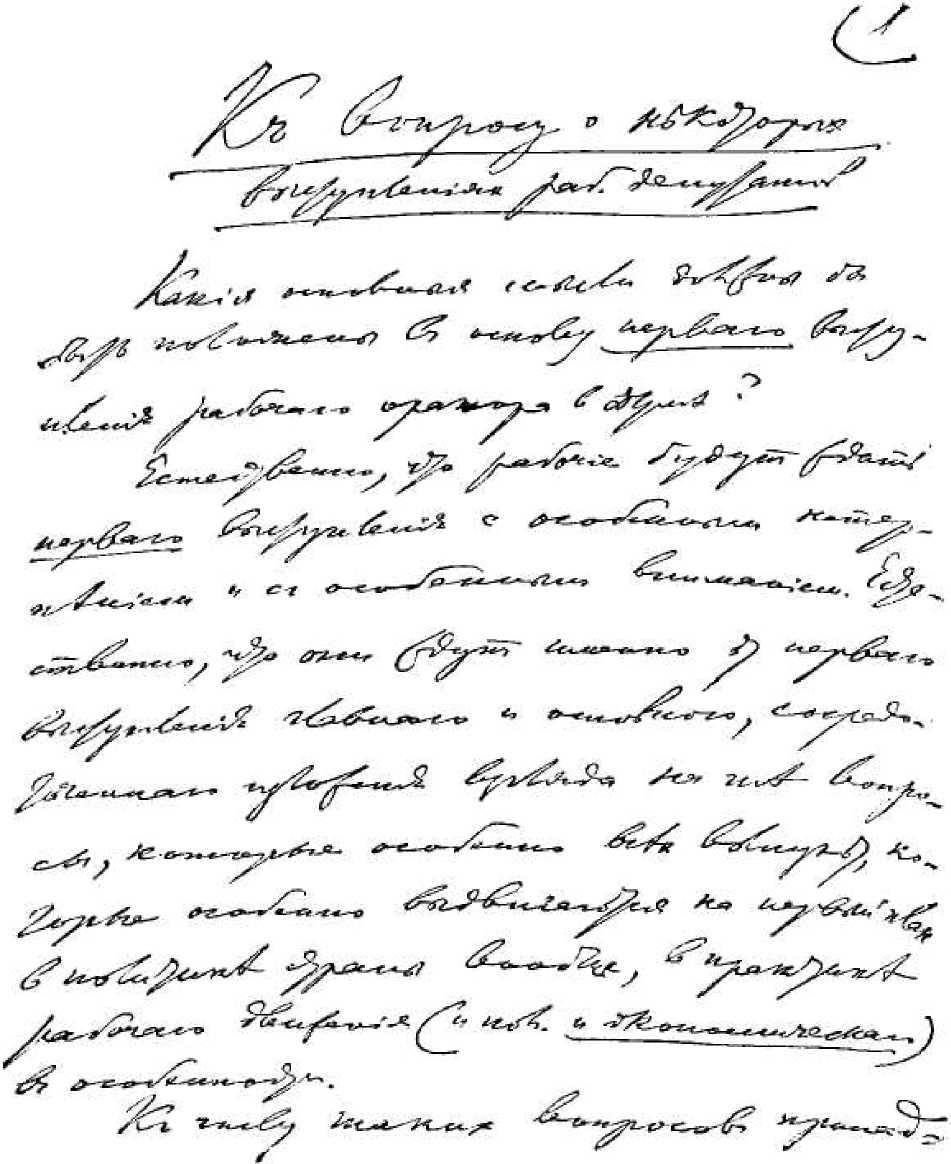 1
Къ вопросу о нѣкоторых
выступленіях раб. депутатов
Какія основныя мысли должны бы
быть положены в основу перваго высту-
пленія рабочаго оратора в Думѣ?
Естественно, что рабочіе будут ждать
перваго выступленія с особенным нетер-
пѣніем и с особенным вниманіем. Есте-
ственно, что они ждут именно от перваго
выступленія главнаго и основного, сосредо-
точеннаго изложенія взгляда на тѣ вопро-
сы, которые особенно всѣх волнуют, ко-
торые особенно выдвигаются на первый план
в политикѣ страны вообще, в практикѣ
рабочаго движенія (и пол. и экономическаго)
в особенности.
К числу таких вопросов принад-